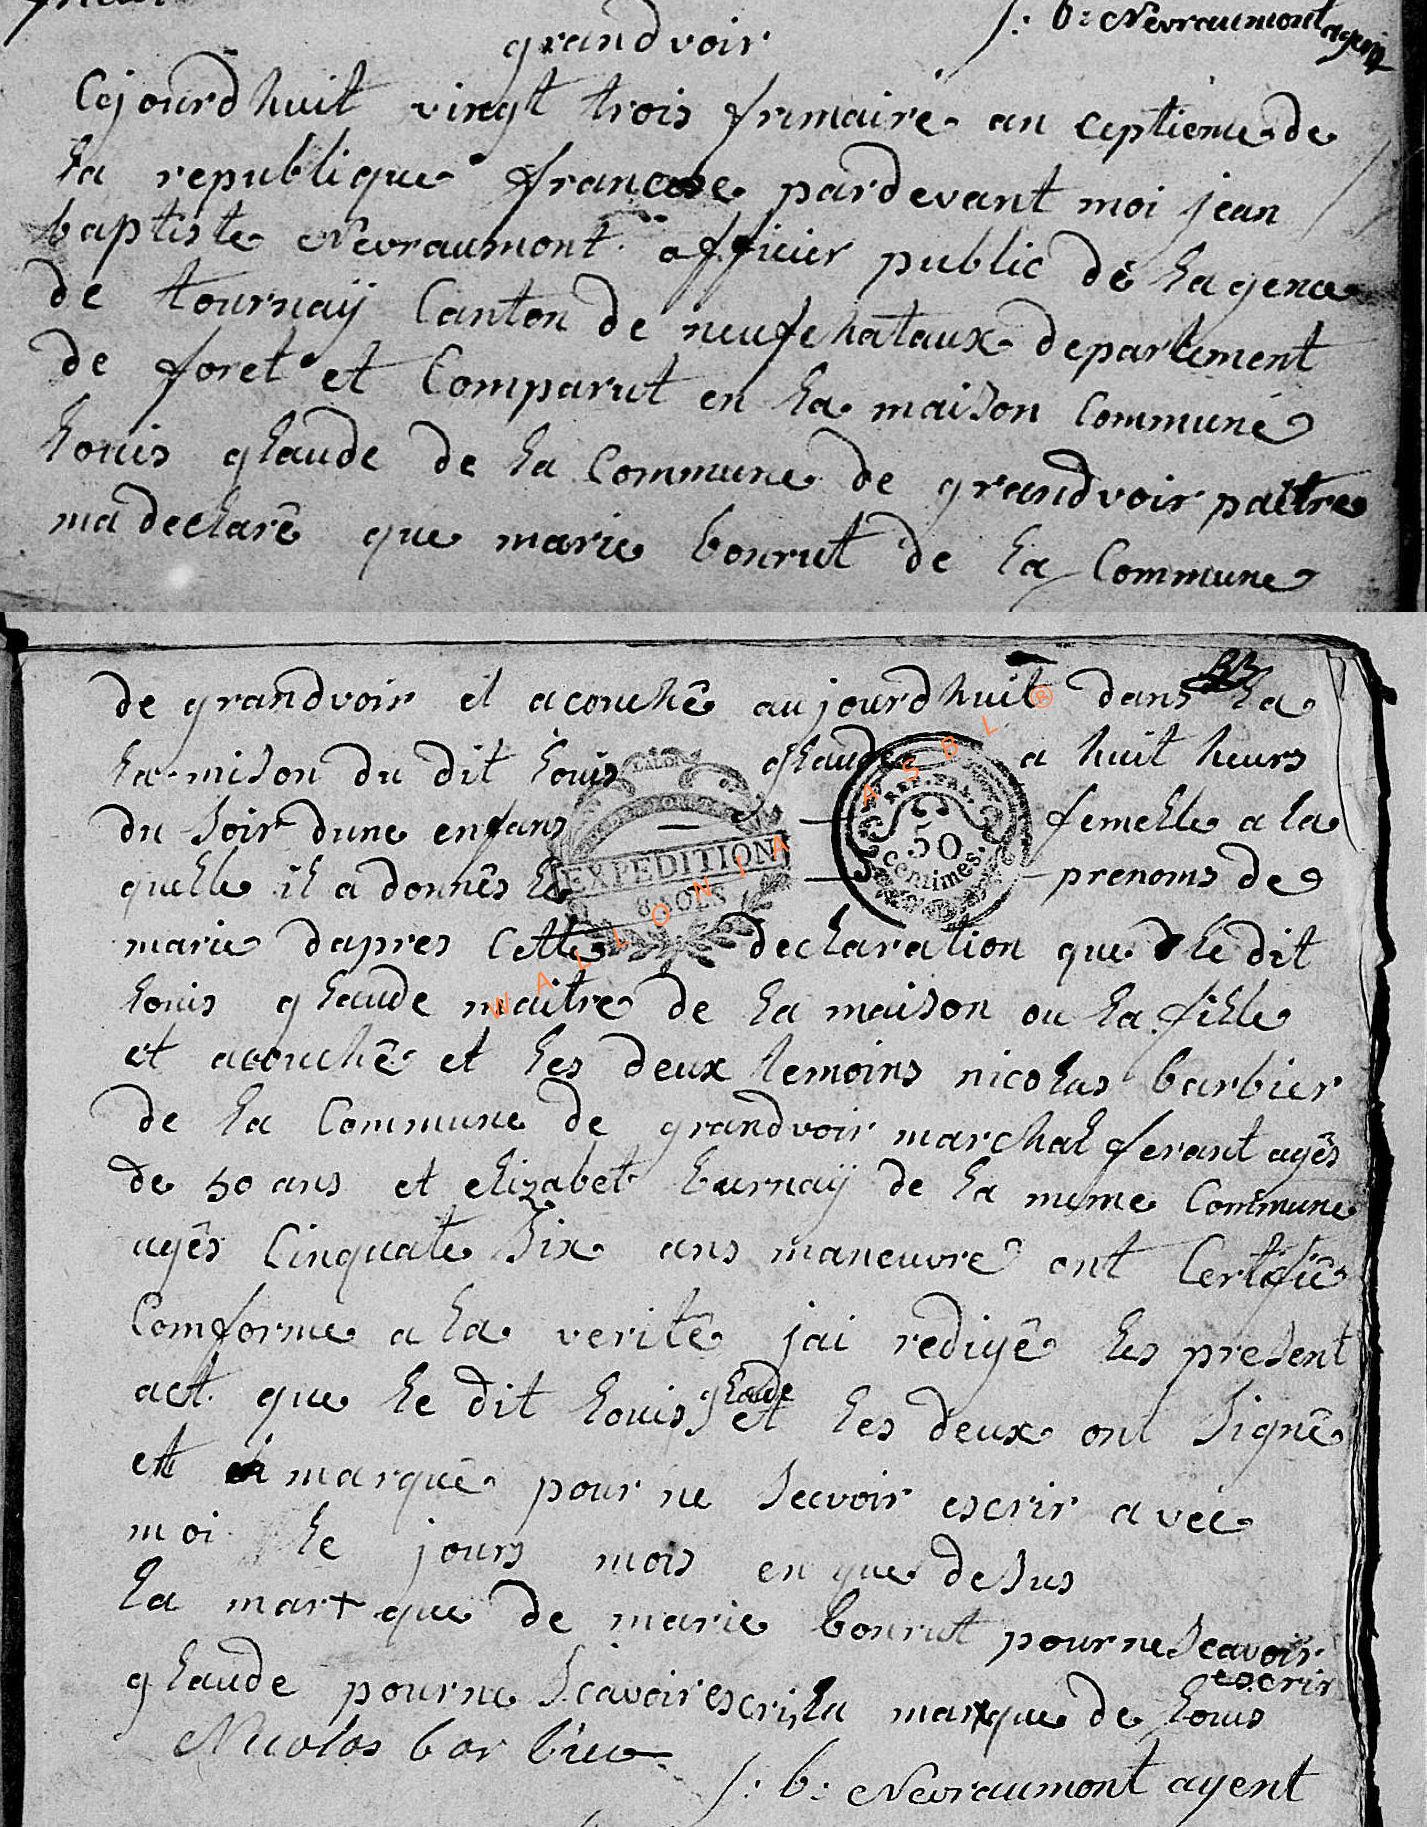 j: b: Nevraumont agent
grandvoir
Cejourdhuit vingt trois frimaire an ceptieme de
la republique francose pardevant moi jean
baptiste Nevraumont officier public de lagence
de tournaÿ Canton de neufchataux departement
de foret et Comparut en la maison Commune
louis glaude de la Commune de grandvoir paitre
ma declarê que marie bonrut de la Commune
de grandvoir el acouchê aujourdhuit dans la
la mison du dit louis glaude a huit heurs
du soir dune enfans femelle a la
quelle il a donnês le prenoms de
marie dapres Cette declaration que le dit
louis glaude maitre de la maison ou la fille
et acouchê et les deux temoins nicolas barbier
de la Commune de grandvoir marchal ferant agês
de 50 ans et elizabet burnaÿ de la meme Commune
agês Cinquate Six ans maneuvre ont Certifiê
Comforme a la veritê jai redigê les present
act que le dit louis glaude et les deux ont signê
et marquê pour ne scavoir escrir avec
moi le jours mois en que desus
la mar+que de marie bonrut pour ne scavoir
escrir
glaude pour ne scavoir escrir la marxque de louis
Nicolas barbier
j: b: Nevraumont agent
EXPEDITION
8 SOLS
REP. FRA.
50
Centimes.
WALLONIA ASBL ®